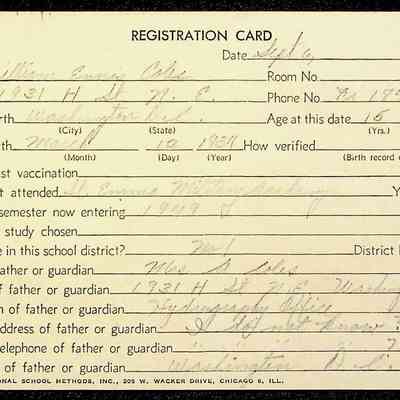 REGISTRATION CARD
Date Sept 6,
William Ennis Coles Room No
1931 H St N. E. Phone No
rth Washington D.C. Age at this date 15
(City) (State) (Yrs.)
th March 12 1934 How verified
(Month) (Day) (Year) (Birth record o
st vaccination
t attended St. Emma Military Academy Y
semester now entering 1949
study chosen
e in this school district? District
ather or guardian Mrs Coles
f father or guardian 1931 H St N.E. Washing
n of father or guardian Hydrography Office
ddress of father or guardian I do not know ?
elephone of father or guardian " " " " ?
of father or guardian Washington D.C.
ONAL SCHOOL METHODS, INC., 205 W. WACKER DRIVE, CHICAGO 6, ILL.